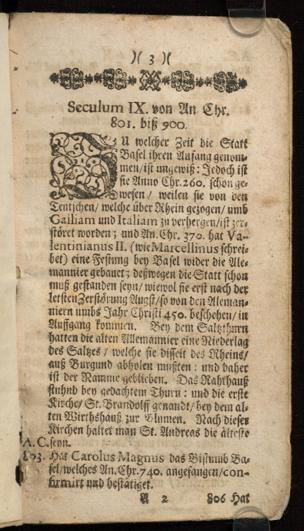 )( 3 )(
Seculum IX. von An Chr.
801. biß 900.
ZU welcher Zeit die Statt
Basel ihren Anfang genom-
men/ ist ungewiß: Jedoch ist
sie Anno Chr. 260. schon ge-
wesen/ weilen sie von den
Teutschen/ welche über Rhein gezogen/ umb
Galliam und Italiam zu verhergen/ ist zer-
störet worden; und An. Chr. 370. hat Va-
lentinianus II. (wie Marcellinus schrei-
bet) eine Festung bey Basel wider die Ale-
mannier gebauet; deßwegen die Statt schon
muß gestanden seyn/ wiewol sie erst nach der
letsten Zerstörung Augst/ so von den Aleman-
niern umbs Jahr Christi 450. beschehen/ in
Auffgang kommen. Bey dem Saltzthurn
hatten die alten Allemannier eine Niederlag
des Saltzes/ welche sie disseit des Rheins/
auß Burgund abholen mußten: und daher
ist der Namme geblieben. Das Rahthauß
stuhnd bey gedachtem Thurn: und die erste
Kirche/ St. Brandolff genandt/ bey dem al-
ten Wirthshauß zur Blumen. Nach dieser
Kirchen haltet man St. Andreas die älteste
A. C. seyn.
803. Hat Carolus Magnus das Bistumb Ba-
sel/ welches An. Chr. 740. angefangen/ con-
firmirt und bestätiget.
A 2 806 Hat